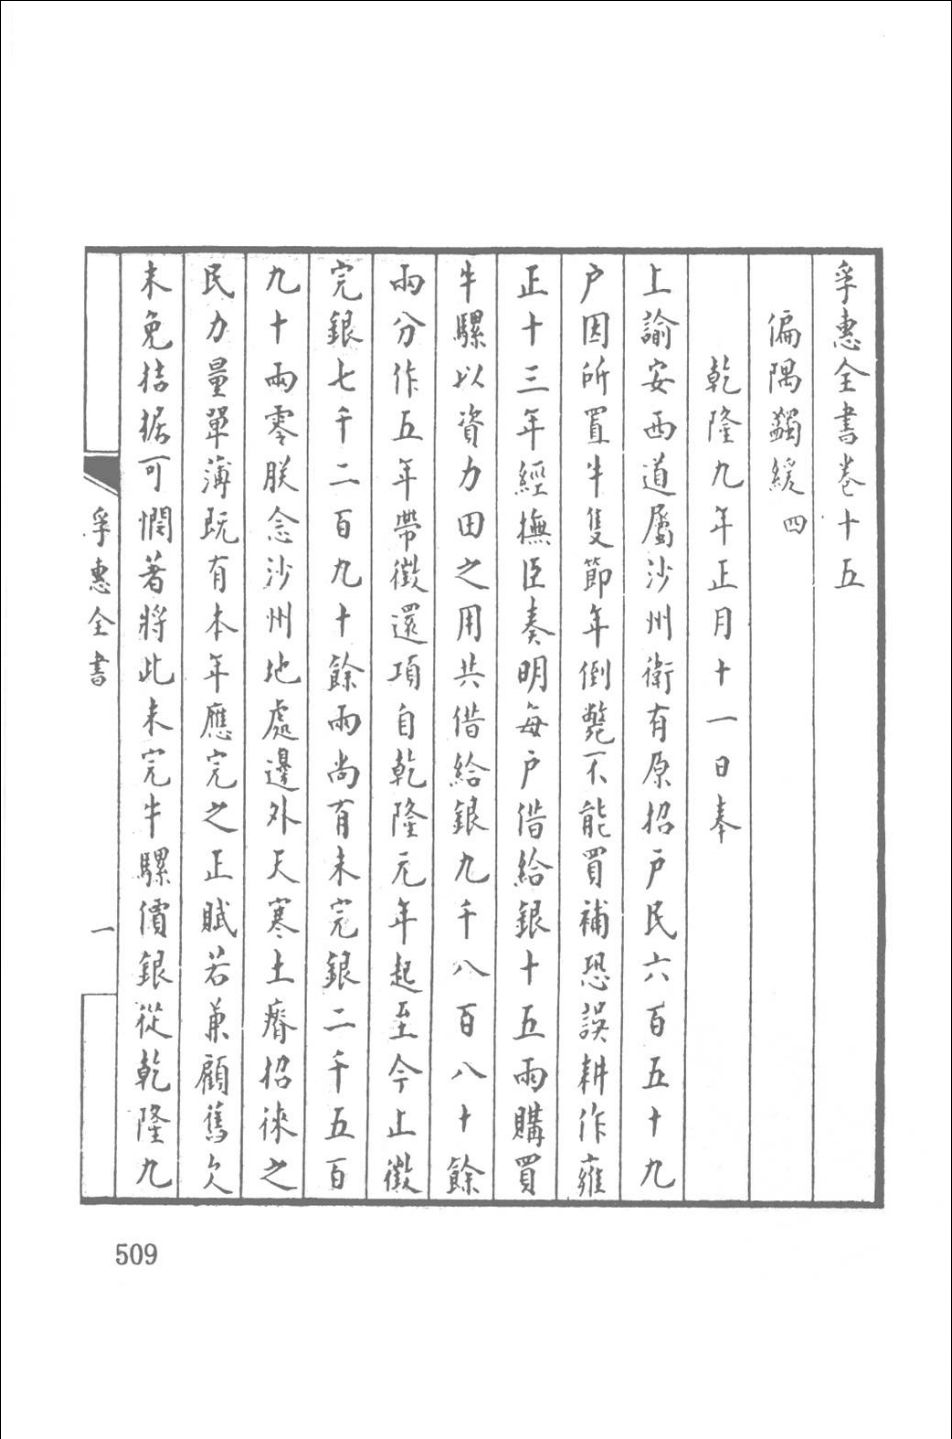 孚惠全書卷十五
偏隅蠲緩 四
乾隆九年正月十一日奉
上諭安西道屬沙州衛有原招户民六百五十九
户因所置牛隻節年倒斃不能買補恐誤耕作雍
正十三年經撫臣奏明每户借給銀十五兩購買
牛騾以資力田之用共借給銀九千八百八十餘
兩分作五年帶徵還項自乾隆元年起至今止徵
完銀七千二百九十餘兩尚有未完銀二千五百
九十兩零朕念沙州地處邊外天寒土瘠招徠之
民力量單薄既有本年應完之正賦若兼顧舊欠
未免拮据可憫著將此未完牛騾價銀從乾隆九
孚惠全書
一
509